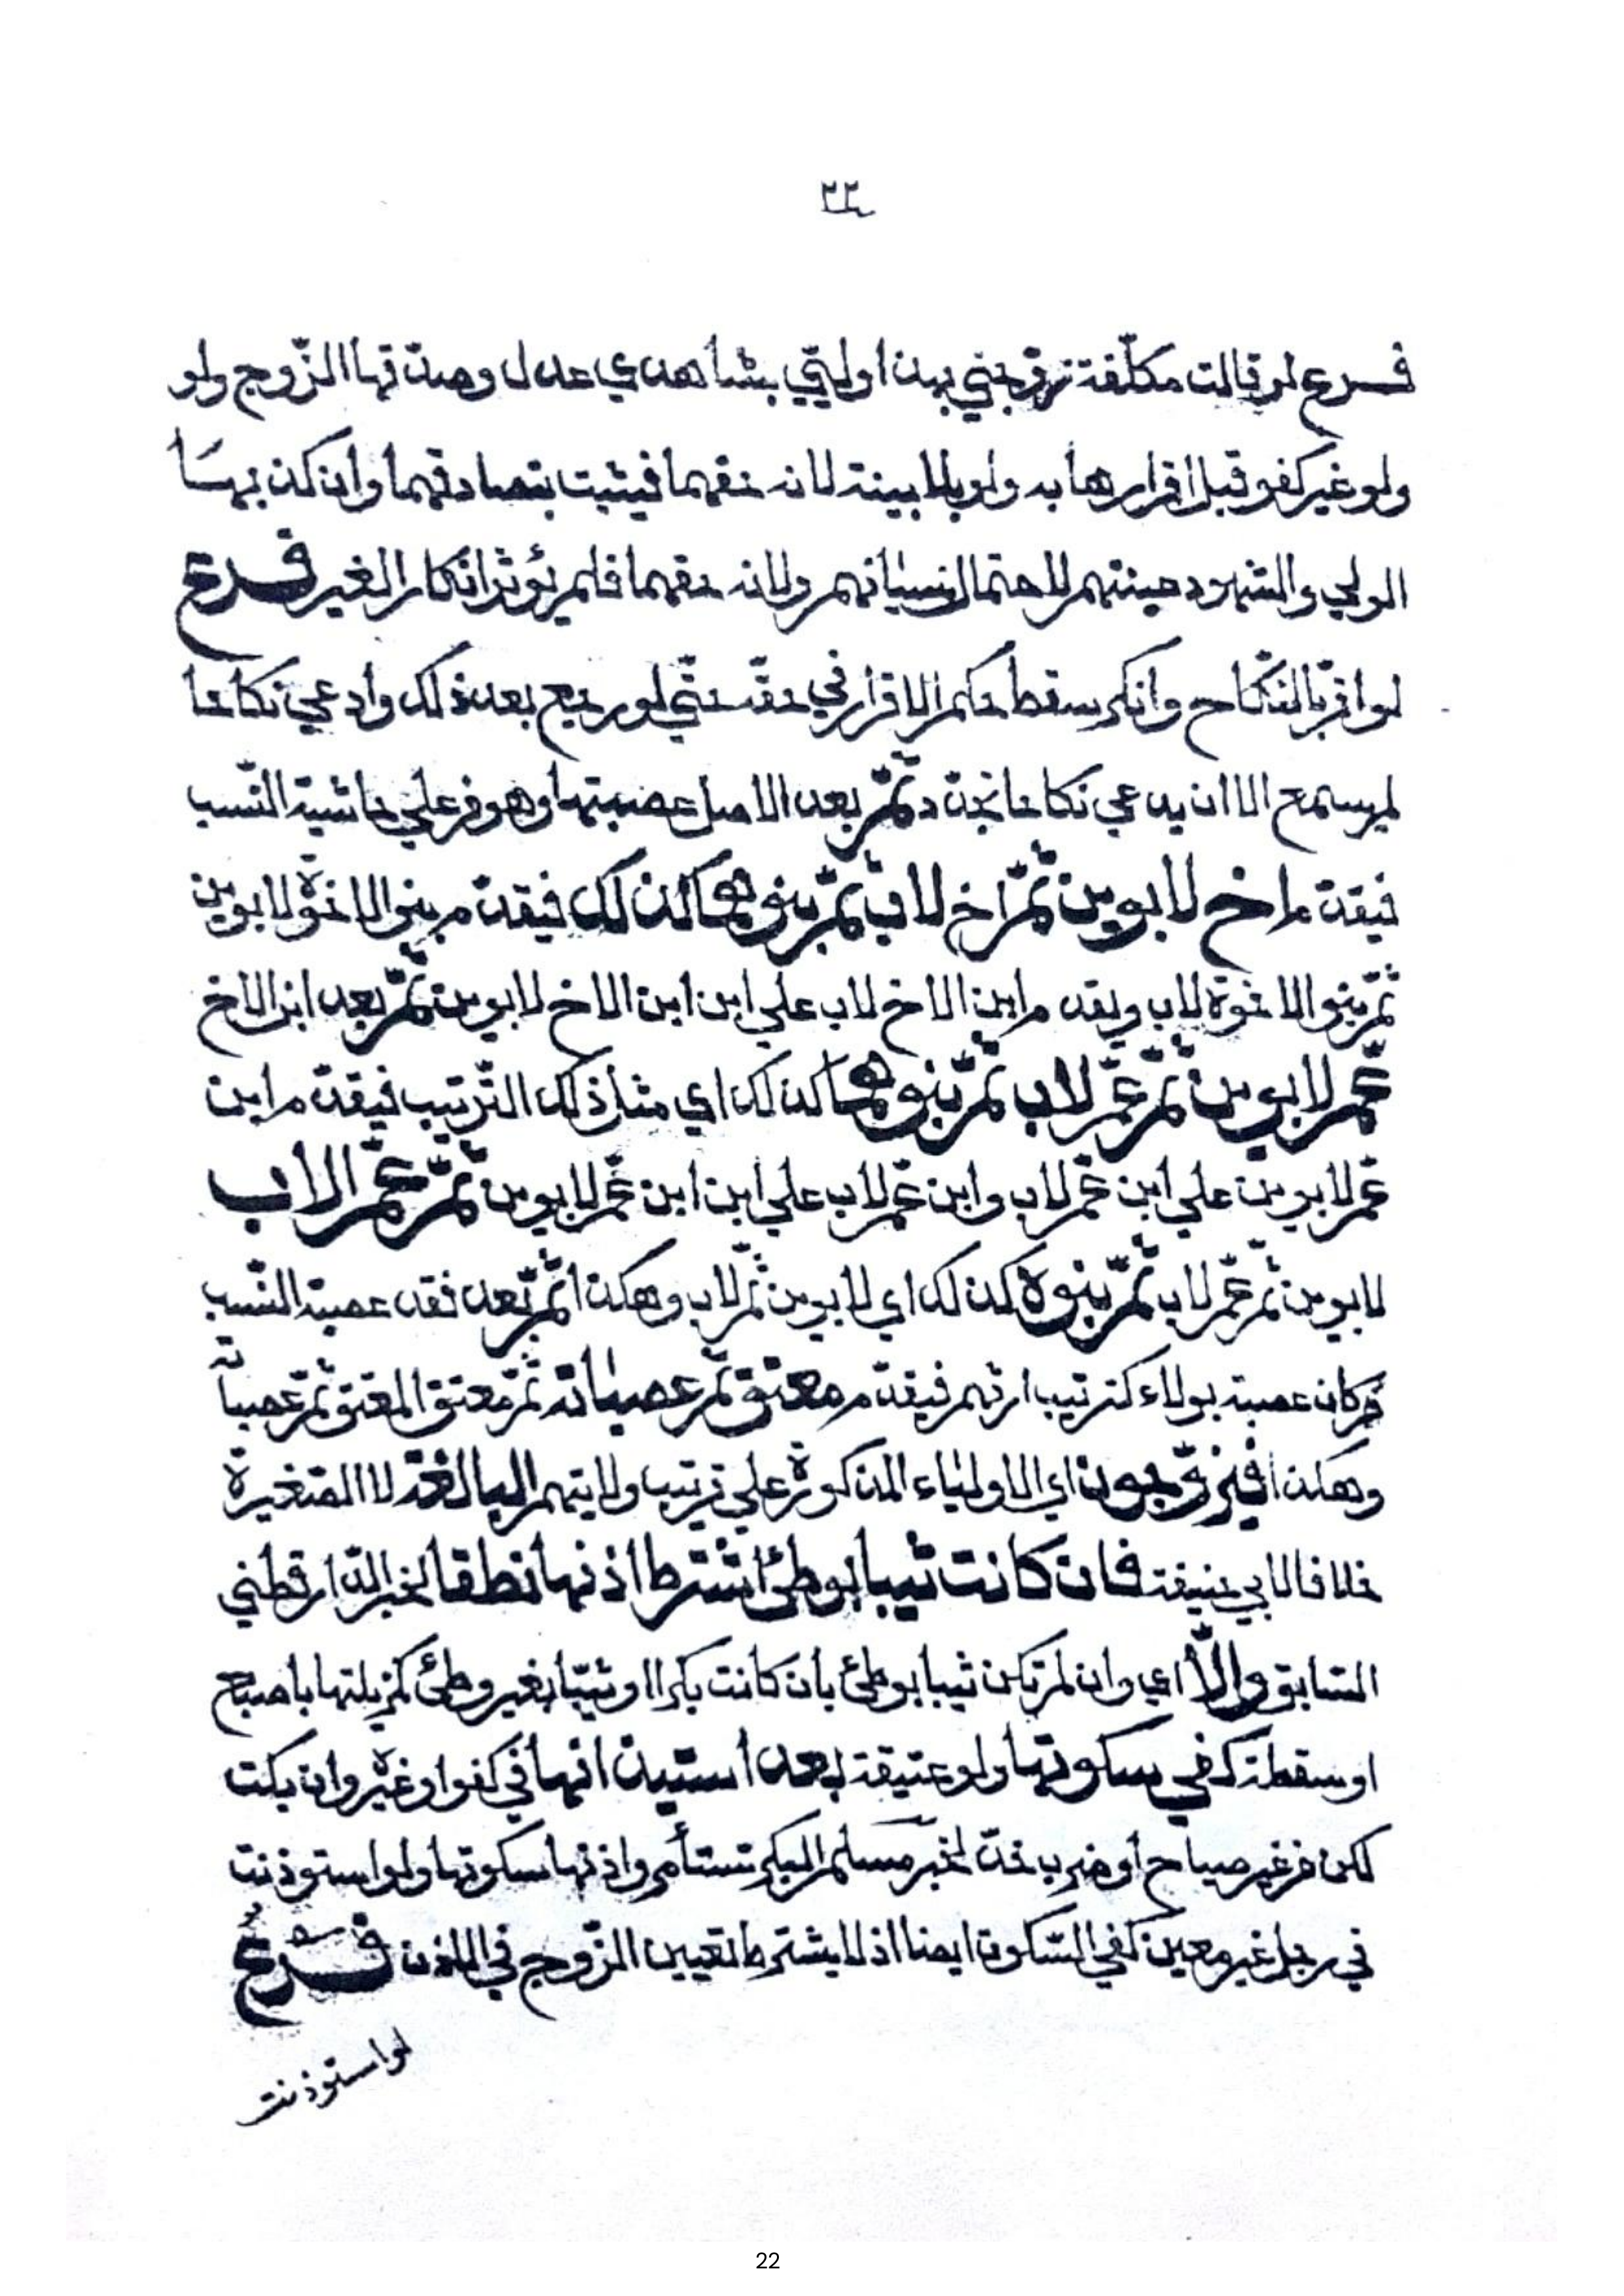 ٢٢
فرع لو قالت مكلّفة تزوّجني زيد اوليّي بشاهدي عدل وصدّقها الزّوج ولو
ولو غير كفو قبل اقرارها به ولو بلا بينة لانه حقهما فيثبت بتصادقهما وان كذبهما
الولي والشهود حينئهم لاحتمال نسيانهم ولانه حقهما فلم يؤثر انكار الغير فرع
لو اقرّ بالنّكاح وانكر سقط حكم الاقرار في حقّه حتّي لو رجع بعد ذلك وادعي نكاحا
لم يسمع الا ان يدعي نكاحا مجدّد ثمّ بعد الاصل عصبتها وهو من علي حاشية النّسب
فيقدّم اخ لابوين ثمّ اخ لاب ثمّ بنوهما كذلك فيقدّم بنو الاخوة لابوين
ثمّ بنو الاخوة لاب ويقدم ابن الاخ لاب علي ابن ابن الاخ لابوين ثمّ بعد ابن الاخ
عمّ لابوين ثمّ عمّ لاب ثمّ بنوهما كذلك اي مثل ذلك التّرتيب فيقدّم ابن
عمّ لابوين علي ابن عمّ لاب وابن عمّ لاب علي ابن ابن عمّ لابوين ثمّ عمّ الاب
لابوين ثمّ عمّ لاب ثمّ بنوه كذلك اي لابوين ثمّ لاب وهكذا ثمّ بعد فقد عصبة النّسب
من كان عصبة بولاء كترتيب ارثهم فيقدّم معتق ثمّ عصباته ثمّ معتق المعتق ثمّ عصباته
وهكذا فيزوّجون اي الاولياء المذكورة علي ترتيب ولايتهم البالغة لا الصّغيرة
خلافا لابي حنيفة فان كانت ثيبا بوطئ اشترط اذنها نطقا لخبر الدّارقطني
السّابق والّا اي وان لم تكن ثيبا بوطئ بان كانت بكرا او ثيّبا بغير وطئ كمزيلتها باصبع
او سقطة كفي سكوتها ولو عتيقة بعد استيذانها في كفو او غيره وان بكت
لكن من غير صياح او ضرب خدّ لخبر مسلم البكر تستأمر واذنها سكوتها ولو استوذنت
في رجل غير معين كفي السّكوت ايضا اذ لا يشترط تعيين الزّوج في الاذن فرع
لو استوذنت
22